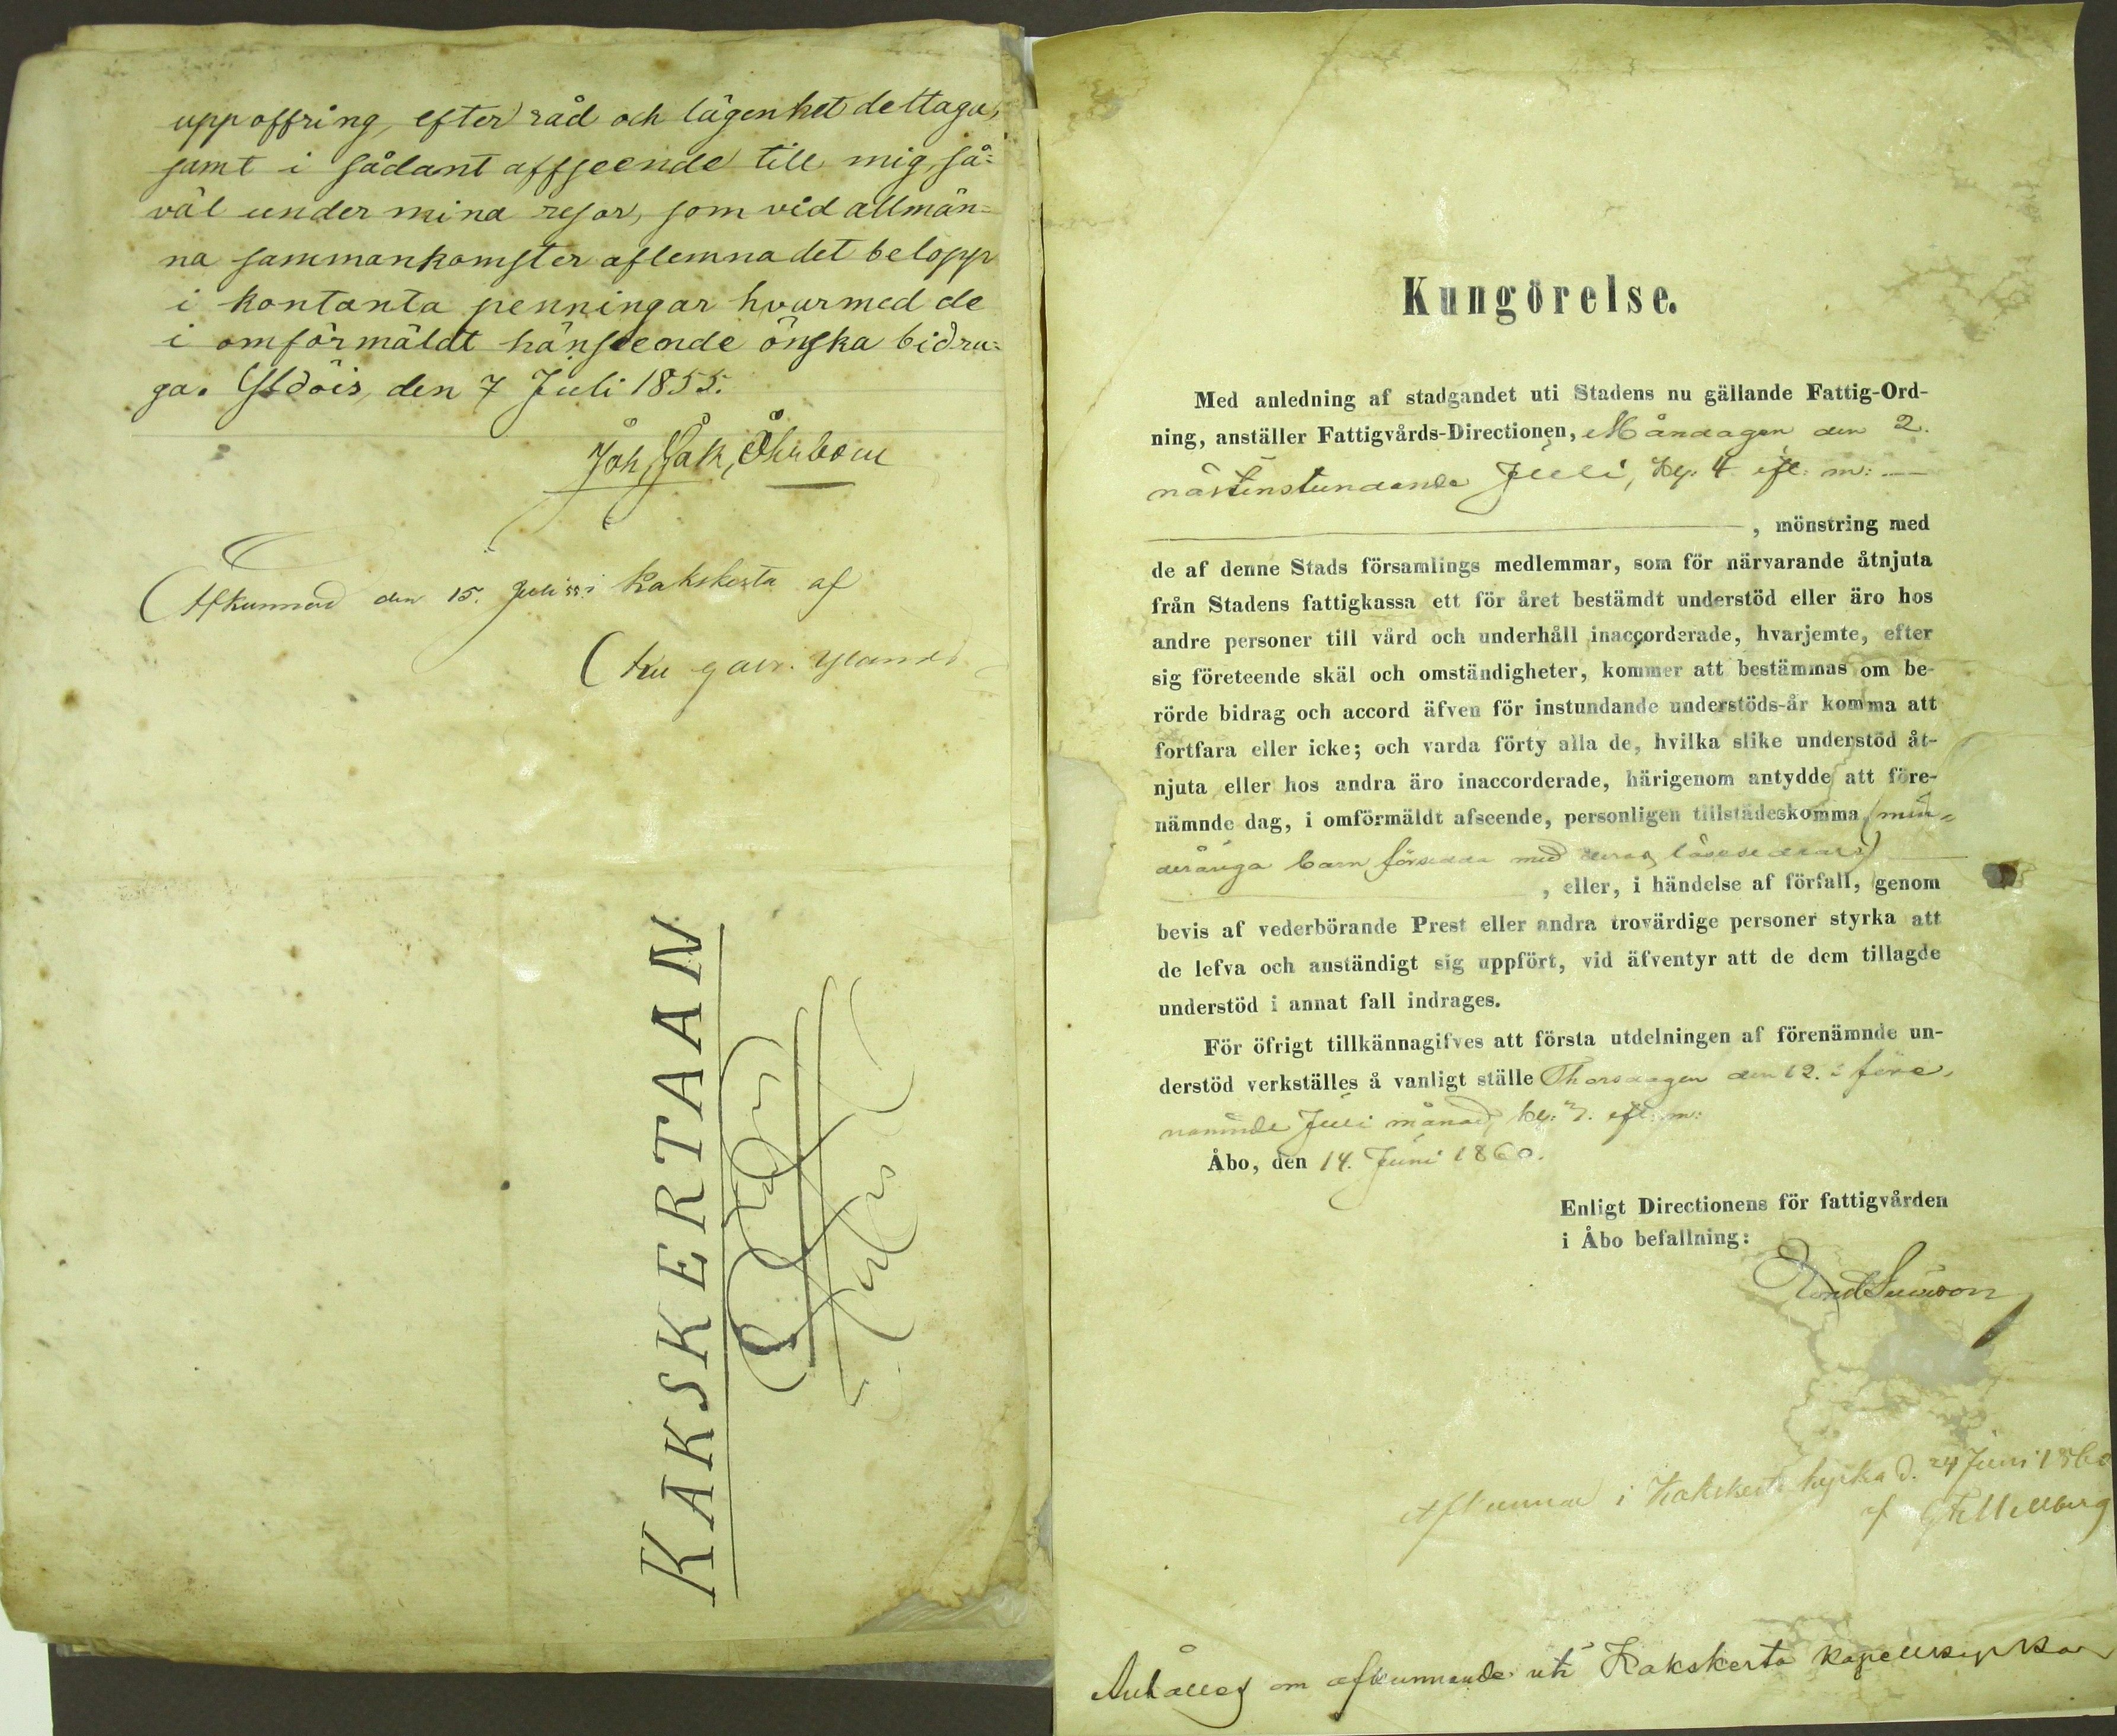 uppoffring, efter råd och lägenhet deltaga,
samt i sådant affseende till mig, så=
väl under mina resor, som vid allmän=
na sammankomster aflemna det belopp
i kontanta penningar hvarmed de
i omförmäldt hänseende önska bidra=
ga. Yldöis, den 7 Juli 1855.
Joh, Jak, Öhrbom
Afkunnad den 15. Juli 55 i Kakskerta af
KAKSKERTAAN
Kungörelse.
Med anledning af stadgandet uti Stadens nu gällande Fattig-Ord-
ning, anställer Fattigvårds-Directionen, Måndagen den 2.
nästinstundande Juli, kl: 4 eft: m: —
, mönstring med
de af denne Stads församlings medlemmar, som för närvarande åtnjuta
från Stadens fattigkassa ett för året bestämdt understöd eller äro hos
andre personer till vård och underhåll inaccorderade, hvarjemte, efter
sig företeende skäl och omständigheter, kommer att bestämmas om be-
rörde bidrag och accord äfven för instundande understöds-år komma att
fortfara eller icke; och varda förty alla de, hvilka slike understöd åt-
njuta eller hos andra äro inaccorderade, härigenom antydde att före-
nämnde dag, i omförmäldt afseende, personligen tillstädeskomma (min=
deråriga barn försedda med deras låsesedlar)
, eller, i händelse af förfall, genom
bevis af vederbörande Prest eller andra trovärdige personer styrka att
de lefva och anständigt sig uppfört, vid äfventyr att de dem tillagde
understöd i annat fall indrages.
För öfrigt tillkännagifves att första utdelningen af förenämnde un-
derstöd verkställes å vanligt ställe Thorsdagen den 12. i före-
nämnde Juli månad, kl: 3. eft: m:
Åbo, den 14. Juni 1860.
Enligt Directionens för fattigvården
i Åbo befallning:
Afkunnad i Kakskerta kyrka d. 24 Juni 1860
af
Anhålles om afkunnande uti Kakskerta kapellkyrka